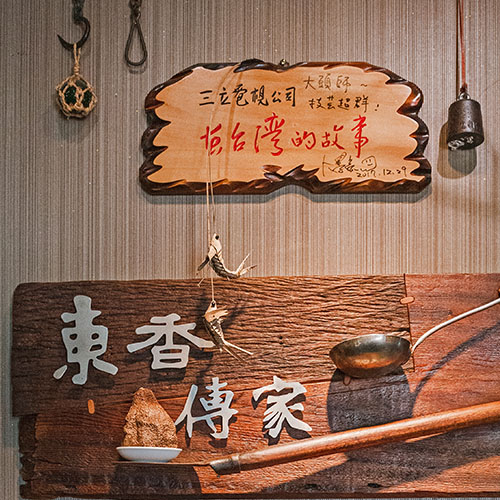 三立電視公司
大頭師~
技芸超群!
在台灣的故事
2017.12.29
東香
傳家